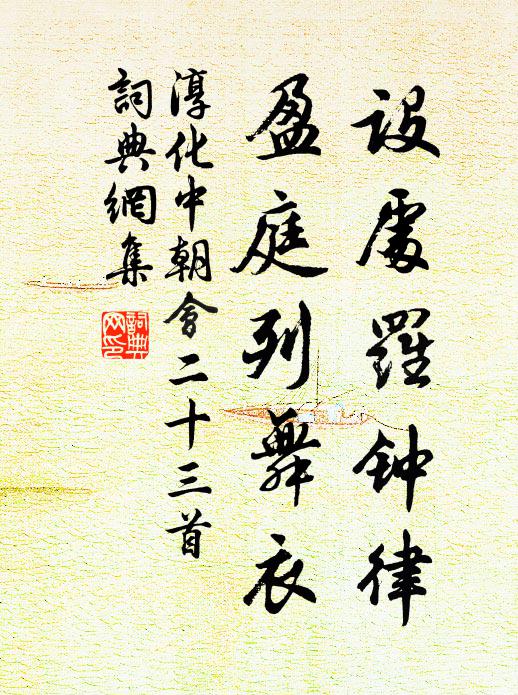 设处罗钟律
盈庭列舞衣
淳化中朝会二十三首
詞典網集
詞典网印